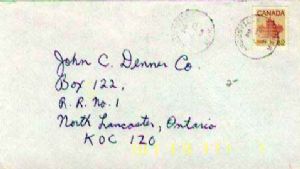 CANADA
John C. Denner Co.
Box 122,
R. R. No. 1
North Lancaster, Ontario
K0C 1Z0